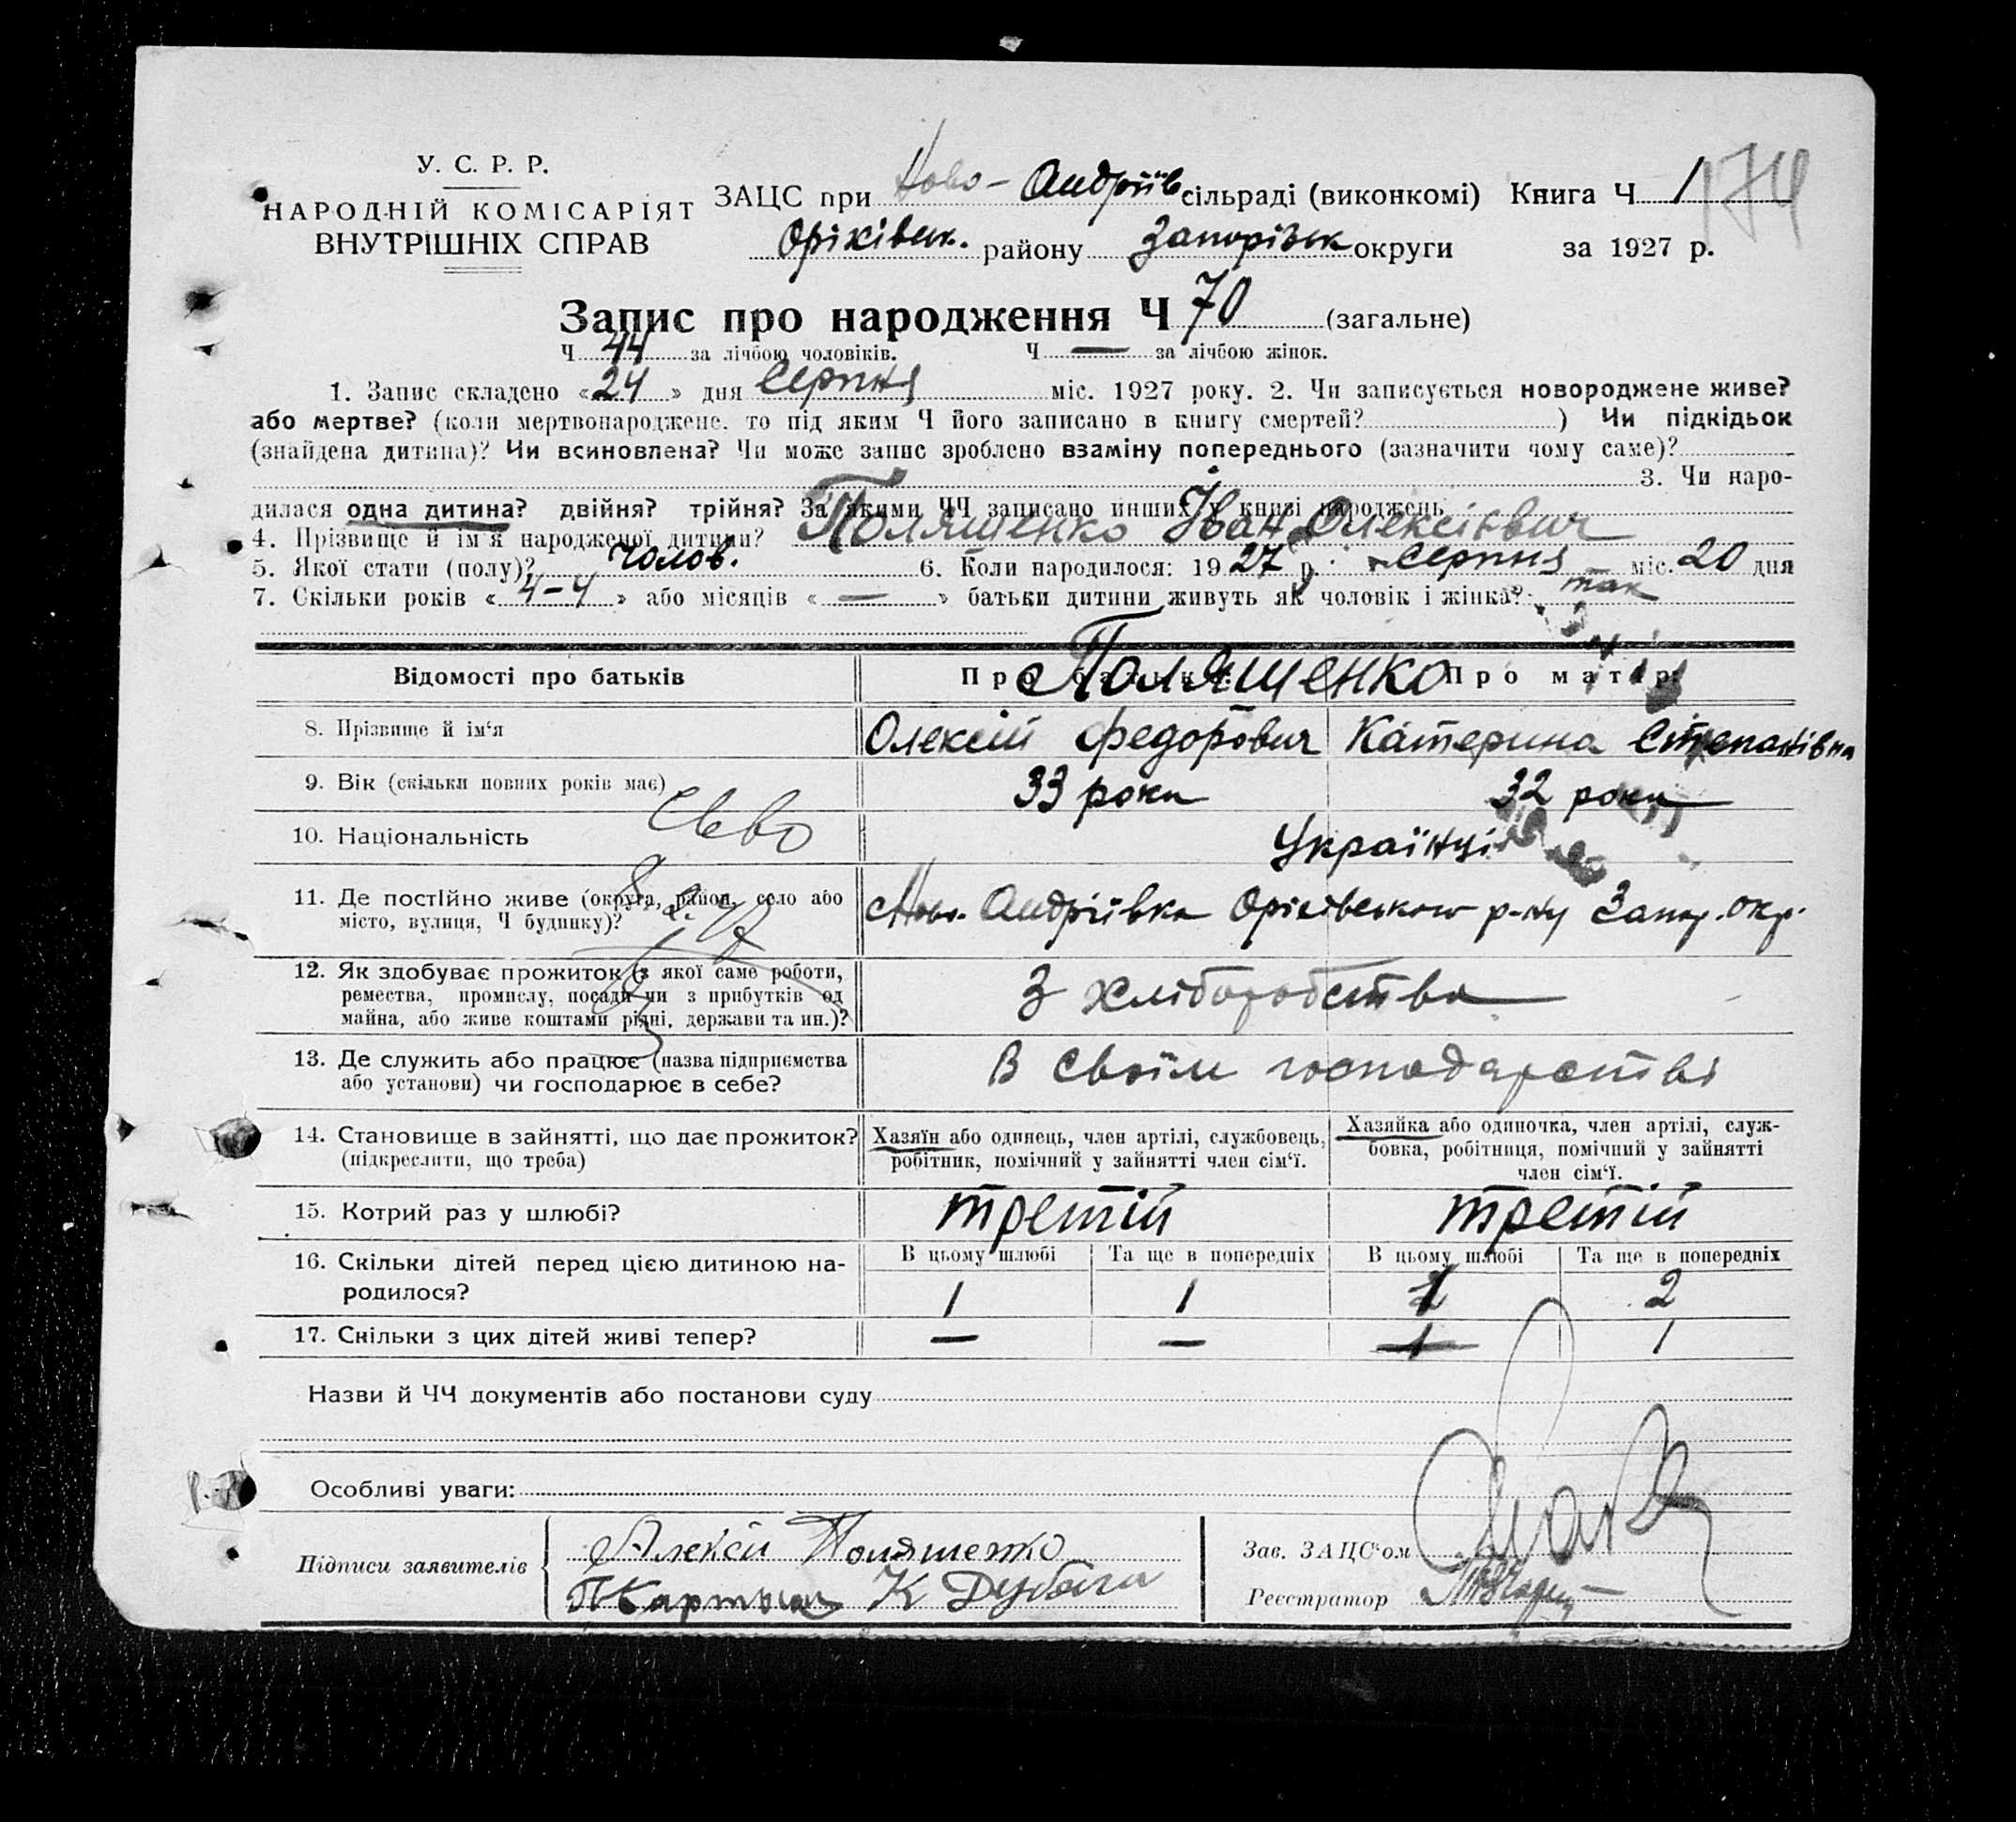 У. С. Р. Р.
НАРОДНІЙ КОМІСАРІЯТ
ВНУТРІШНІХ СПРАВ
ЗАЦС при Ново-Андріїв сільраді (виконкомі) Книга Ч 1 174
Оріхівськ. району Запорізьк округи за 1927 р.
Запис про народження Ч 70 (загальне)
Ч 44 за лічбою чоловіків. Ч — за лічбою жінок.
1. Запис складено «24» дня Серпня міс. 1927 року. 2. Чи записується новороджене живе?
або мертве? (коли мертвонароджене, то під яким Ч його записано в книгу смертей? ) Чи підкідьок
(знайдена дитина)? Чи всиновлена? Чи може запис зроблено взаміну попереднього (зазначити чому саме)?
3. Чи наро-
дилася одна дитина? двійня? трійня? За якими ЧЧ записано инших у книзі народжень
4. Прізвище й ім'я народженої дитини? Поляшенко Іван Олексієвич
5. Якої стати (полу)? Чолов. 6. Коли народилося: 1927 р. серпня міс. 20 дня
7. Скільки років «4-4» або місяців «—» батьки дитини живуть як чоловік і жінка? так
Відомості про батьків Про батька: Про матір:
Поляшенко
8. Прізвище й ім'я Олексій Федорович Катерина Степанівна
9. Вік (скільки повних років має) 33 роки 32 роки
10. Національність Українці
11. Де постійно живе (округа, район, село або
місто, вулиця, Ч будинку)? Ново-Андріївка Оріхівського р-ну Запор. окр.
12. Як здобуває прожиток (з якої саме роботи,
ремества, промислу, посади чи з прибутків од
майна, або живе коштами рідні, держави та ин.)? З хліборобства
13. Де служить або працює (назва підприємства
або установи) чи господарює в себе? В своїм господарстві
14. Становище в зайнятті, що дає прожиток?
(підкреслити, що треба)
Хазяїн або одинець, член артілі, службовець,
робітник, помічний у зайнятті член сім'ї.
Хазяйка або одиночка, член артілі, служ-
бовка, робітниця, помічний у зайнятті
член сім'ї.
15. Котрий раз у шлюбі? третій третій
16. Скільки дітей перед цією дитиною на-
родилося?
В цьому шлюбі Та ще в попередніх В цьому шлюбі Та ще в попередніх
1 1 1 2
17. Скільки з цих дітей живі тепер? — — 1 1
Назви й ЧЧ документів або постанови суду
Особливі уваги:
Підписи заявителів
Алексій Поляшенко
К
Зав. ЗАЦС'ом
Реєстратор